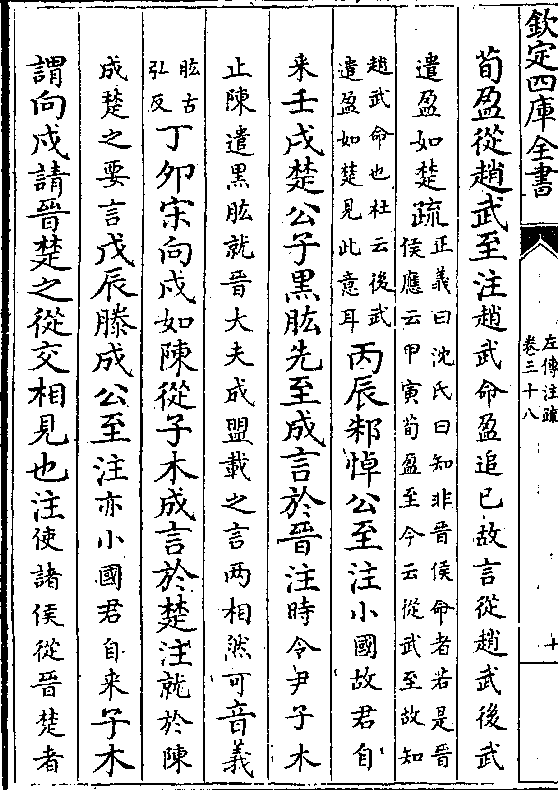 欽定四庫全書
左傳注疏
卷三十八
十
荀盈從趙武至注趙武命盈追已故言從趙武後武
遣盈如楚疏正義曰沈氏曰知非晉侯命者若是晉
侯應云甲寅荀盈至今云從武至故知
趙武命也杜云後武
遣盈如楚見此意耳丙辰邾悼公至注小國故君自
来壬戌楚公子黑肱先至成言於晉注時令尹子木
止陳遣黑肱就晉大夫成盟載之言两相然可音義
肱古
弘反丁卯宋向戌如陳從子木成言於楚注就於陳
成楚之要言戊辰滕成公至注亦小國君自来子木
謂向戌請晉楚之從交相見也注使諸侯從晉楚者